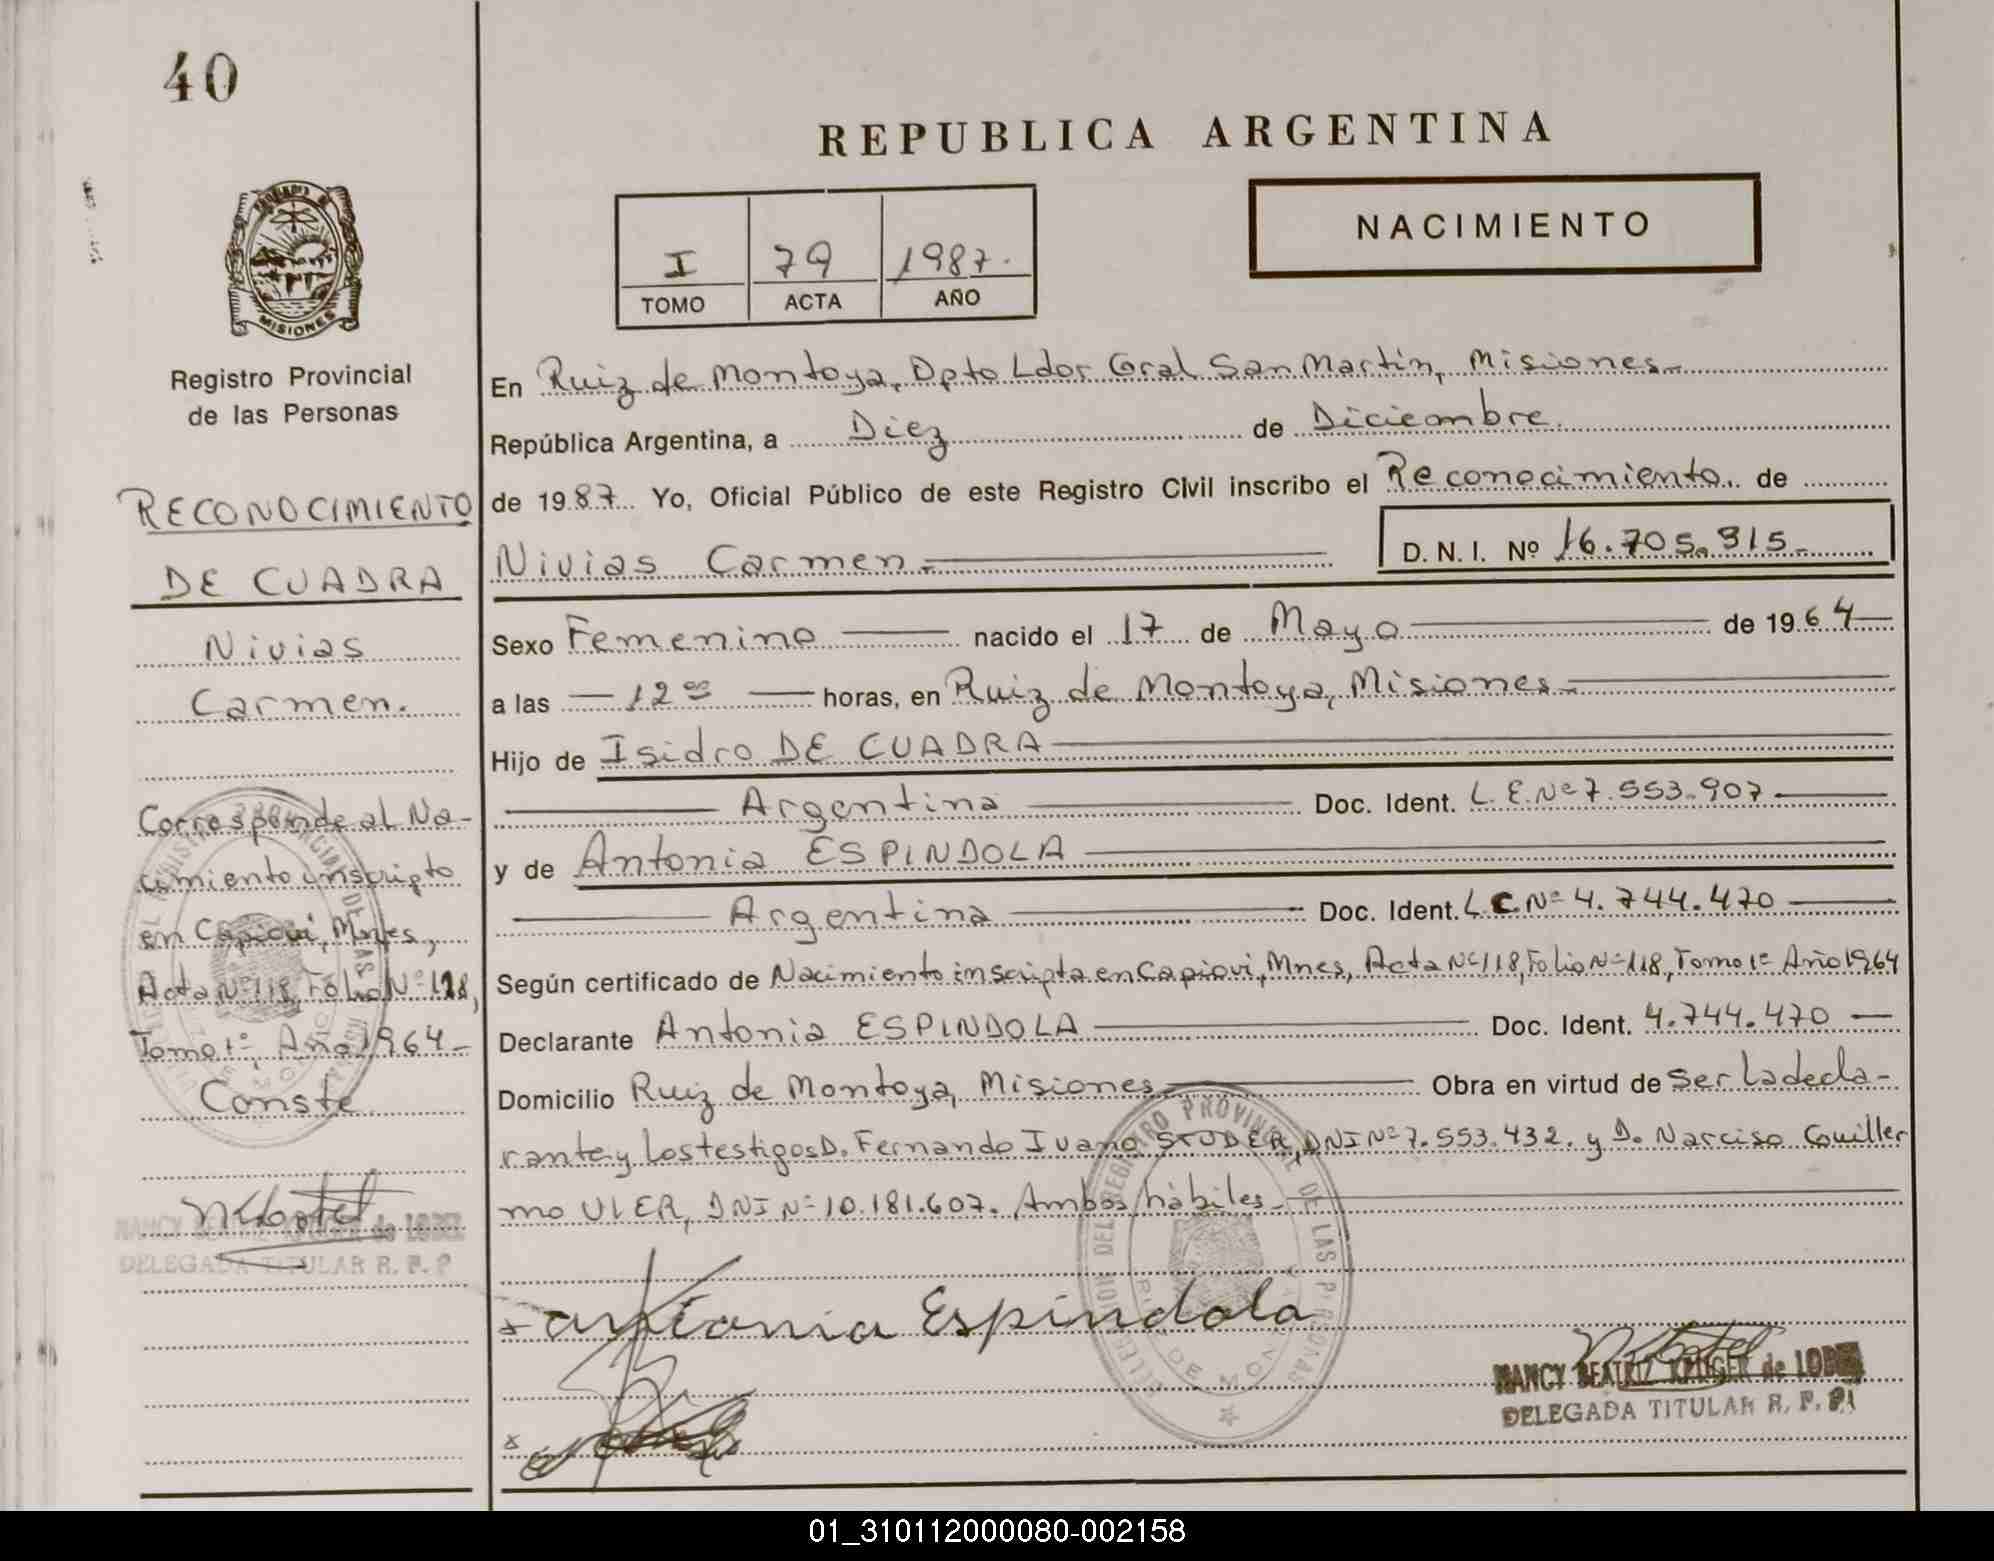 40
REPUBLICA ARGENTINA
NACIMIENTO
I 79 1987.
TOMO ACTA AÑO
MISIONES
Registro Provincial
de las Personas
RECONOCIMIENTO
DE CUADRA
Nivias
Carmen.
Corresponde al Na-
cimiento inscripto
en Capiovi, Mnes,
Acta Nº 118, Folio Nº 118,
Tomo 1º, Año 1964-
Conste
DELEGADA TITULAR R. P. P
En Ruiz de Montoya, Dpto Ldor Gral San Martín, Misiones-
República Argentina, a Diez de Diciembre
de 1987 Yo, Oficial Público de este Registro Civil inscribo el Reconocimiento de
Nivias Carmen.- D. N. I. Nº 16.705.915-
Sexo Femenino nacido el 17 de Mayo de 1964
a las 12 00 horas, en Ruiz de Montoya, Misiones-
Hijo de Isidro DE CUADRA
Argentina Doc. Ident. L.E.Nº 7.553.907
y de Antonia ESPINDOLA
Argentina Doc. Ident. L.C.Nº 4.744.470
Según certificado de Nacimiento inscripta en Capiovi, Mnes, Acta Nº 118, Folio Nº 118, Tomo 1º Año 1964
Declarante Antonia ESPINDOLA Doc. Ident. 4.744.470
Domicilio Ruiz de Montoya, Misiones Obra en virtud de ser la decla-
rante y los testigos D. Fernando Ivano STUDER, DNI Nº 7.553.432. y D. Narciso Guiller
mo ULER, DNI Nº 10.181.607. Ambos hábiles-
x antonia Espindola
x
NANCY BEATRIZ KRUGER de LOBEL
DELEGADA TITULAR R. P. P.
01_310112000080-002158